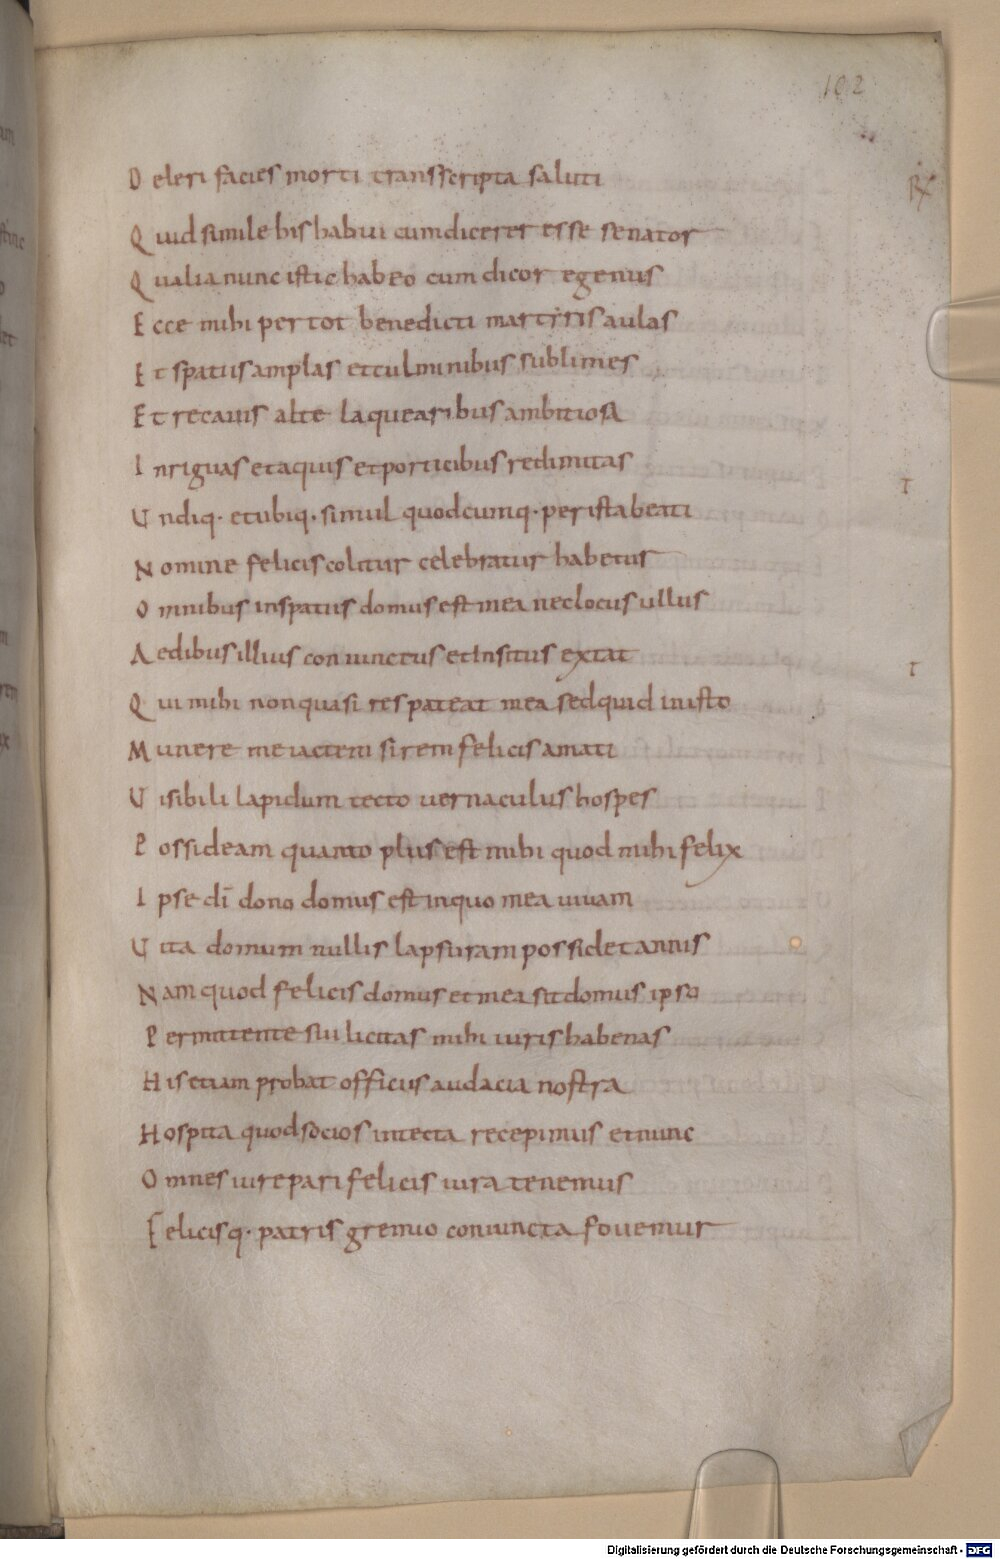 102
Deleri facies morti transscripta saluti
R
Quid simile his habui cum dicerer esse senator
Qualia nunc istic habeo cum dicor egenus
Ecce mihi per tot benedicti martyris aulas
Et spatiis amplas et culminibus sublimes
Et recauis alte laquearibus ambitiosa
Inriguas et aquis et porticibus redimitas
T
Undiq. et ubiq. simul quodcumq. per ista beati
Nomine felicis colitur celebratur habetur
Omnibus in spatiis domus est mea nec locus ullus
Aedibus illius coniunctus et insitus extat
T
Qui mihi non quasi res pateat mea sed quid in isto
Munere me iactem si rem felicis amati
Uisibili lapidum tecto uernaculus hospes
Possideam quanto plus est mihi quod mihi felix
Ipse dī dono domus est in quo mea uiuam
Uita domum nullis lapsuram possidet annis
Nam quod felicis domus et mea sit domus ipso
Permittente sui licitas mihi iuris habenas
His etiam probat officiis audacia nostra
Hospita quod socios in tecta recepimus et nunc
Omnes iure pari felicis iura tenemus
Felicisq. patris gremio coniuncta fouemur
Digitalisierung gefördert durch die Deutsche Forschungsgemeinschaft - DFG